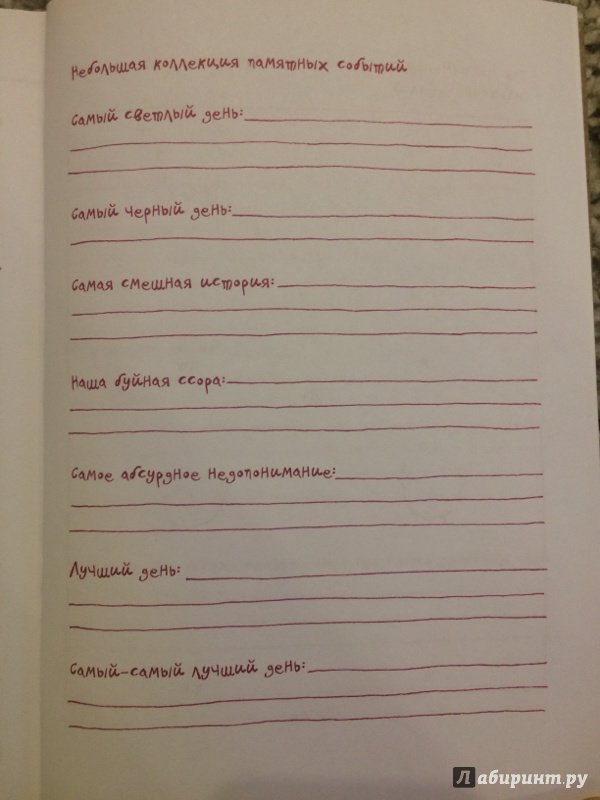 Небольшая коллекция памятных событий
Самый светлый день:
Самый черный день:
Самая смешная история:
Наша буйная ссора:
Самое абсурдное недопонимание:
Лучший день:
Самый-самый лучший день:
Лабиринт.ру